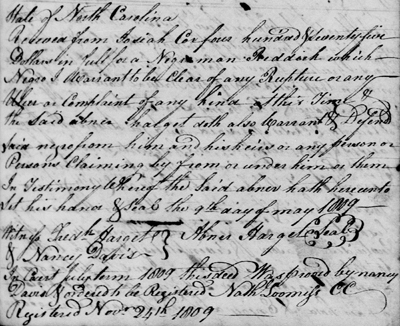 State of North Carolina
Received from Josiah Cox four hundred & seventy five
Dollars in full for a Nigro man Fredrick which
Negro I Warrant to be Clear of any Rupture or any
Ulser or Complaint of any kind at this Time &
the said abner hargett doth also Warrant & Defend
said negro from him and his heirs or any person or
Persons Claiming by from or under him or them
In Testimony Whereof the Said abner hath hereunto
Set his hand & Seal the 9th day of may 1809
Witness Fredk Harget } Abner Harget Seal
& Nancy Davis
In Court July term 1809 this deed Was proved by nancy
Davis & ordered to be Registered Nath Loomiss CC
Registered Novr 24th 1809